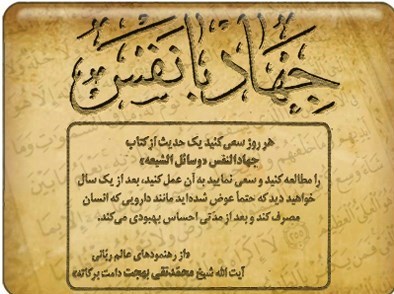 جهاد با نفس
هر روز سعی کنید یک حدیث از کتاب
جهادالنفس «وسائل الشیعه»
را مطالعه کنید و سعی نمایید به آن عمل کنید، بعد از یک سال
خواهید دید که حتماً عوض شده‌اید مانند دارویی که انسان
مصرف کند و بعد از مدتی احساس بهبودی می‌کند.
«از رهنمودهای عالم ربّانی
آیت الله شیخ محمدتقی بهجت دامت برکاته»